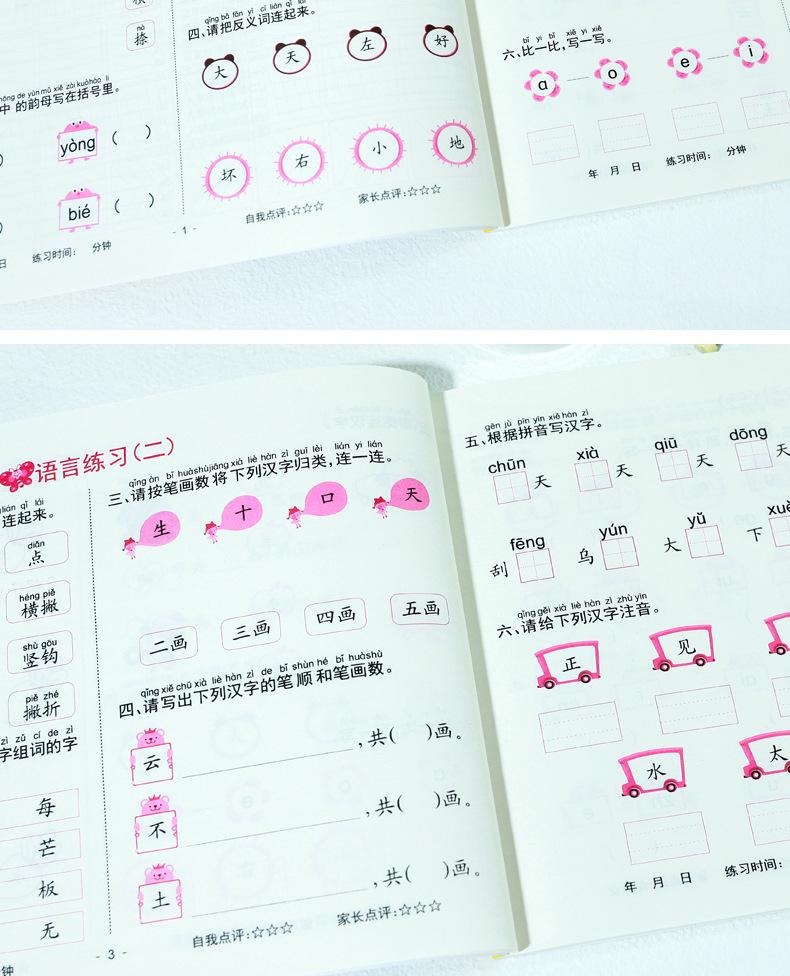 nà
捺
zhōng de yùn mǔ xiě zài kuò hào li
中 的韵母写在括号里。
yòng (    )
bié (    )
日 练习时间: 分钟
qǐng bǎ fǎn yì cí lián qǐ lái
四、请把反义词连起来。
大 天 左 好
坏 右 小 地
自我点评:☆☆☆ 家长点评:☆☆☆
- 1 -
bǐ yi bǐ xiě yi xiě
六、比一比,写一写。
ɑ o e i
年 月 日 练习时间: 分钟
语言练习(二)
lián qǐ lái
连起来。
diǎn
点
héng piě
横撇
shù gōu
竖钩
piě zhé
撇折
zì zǔ cí de zì
字组词的字
每
芒
板
无
钟
qǐng àn bǐ huà shù jiāng xià liè hàn zì guī lèi lián yi lián
三、请按笔画数将下列汉字归类,连一连。
生 十 口 天
二画 三画 四画 五画
qǐng xiě chū xià liè hàn zì de bǐ shùn hé bǐ huà shù
四、请写出下列汉字的笔顺和笔画数。
云 ,共(    )画。
不 ,共(    )画。
土 ,共(    )画。
自我点评:☆☆☆ 家长点评:☆☆☆
- 3 -
gēn jù pīn yīn xiě hàn zì
五、根据拼音写汉字。
chūn xià qiū dōng
天 天 天 天
fēng yún yǔ xuě
刮 乌 大 下
qǐng gěi xià liè hàn zì zhù yīn
六、请给下列汉字注音。
正 见
水 太
年 月 日 练习时间: